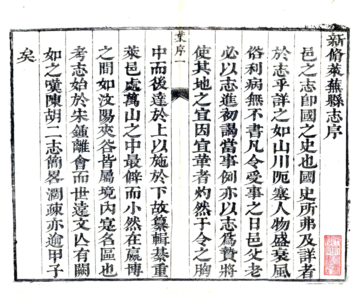 新修萊蕪縣志序
邑之志即國之史也國史所弗及詳者
於志乎詳之如山川阨塞人物盛衰風
俗利病無不書凡令受事之日邑父老
必以志進初謁當事例亦以志為贄將
使其地之宜因宜革者灼然于令之胸
葉序一
中而後達於上以施於下故纂輯綦重
萊邑處萬山之中最僻而小然在嬴博
之間如汶陽夾谷皆屬境內寔名區也
考志始於宋鍾離會而世遠文亾有闕
如之嘆陳胡二志簡畧濶疎亦逾甲子
矣